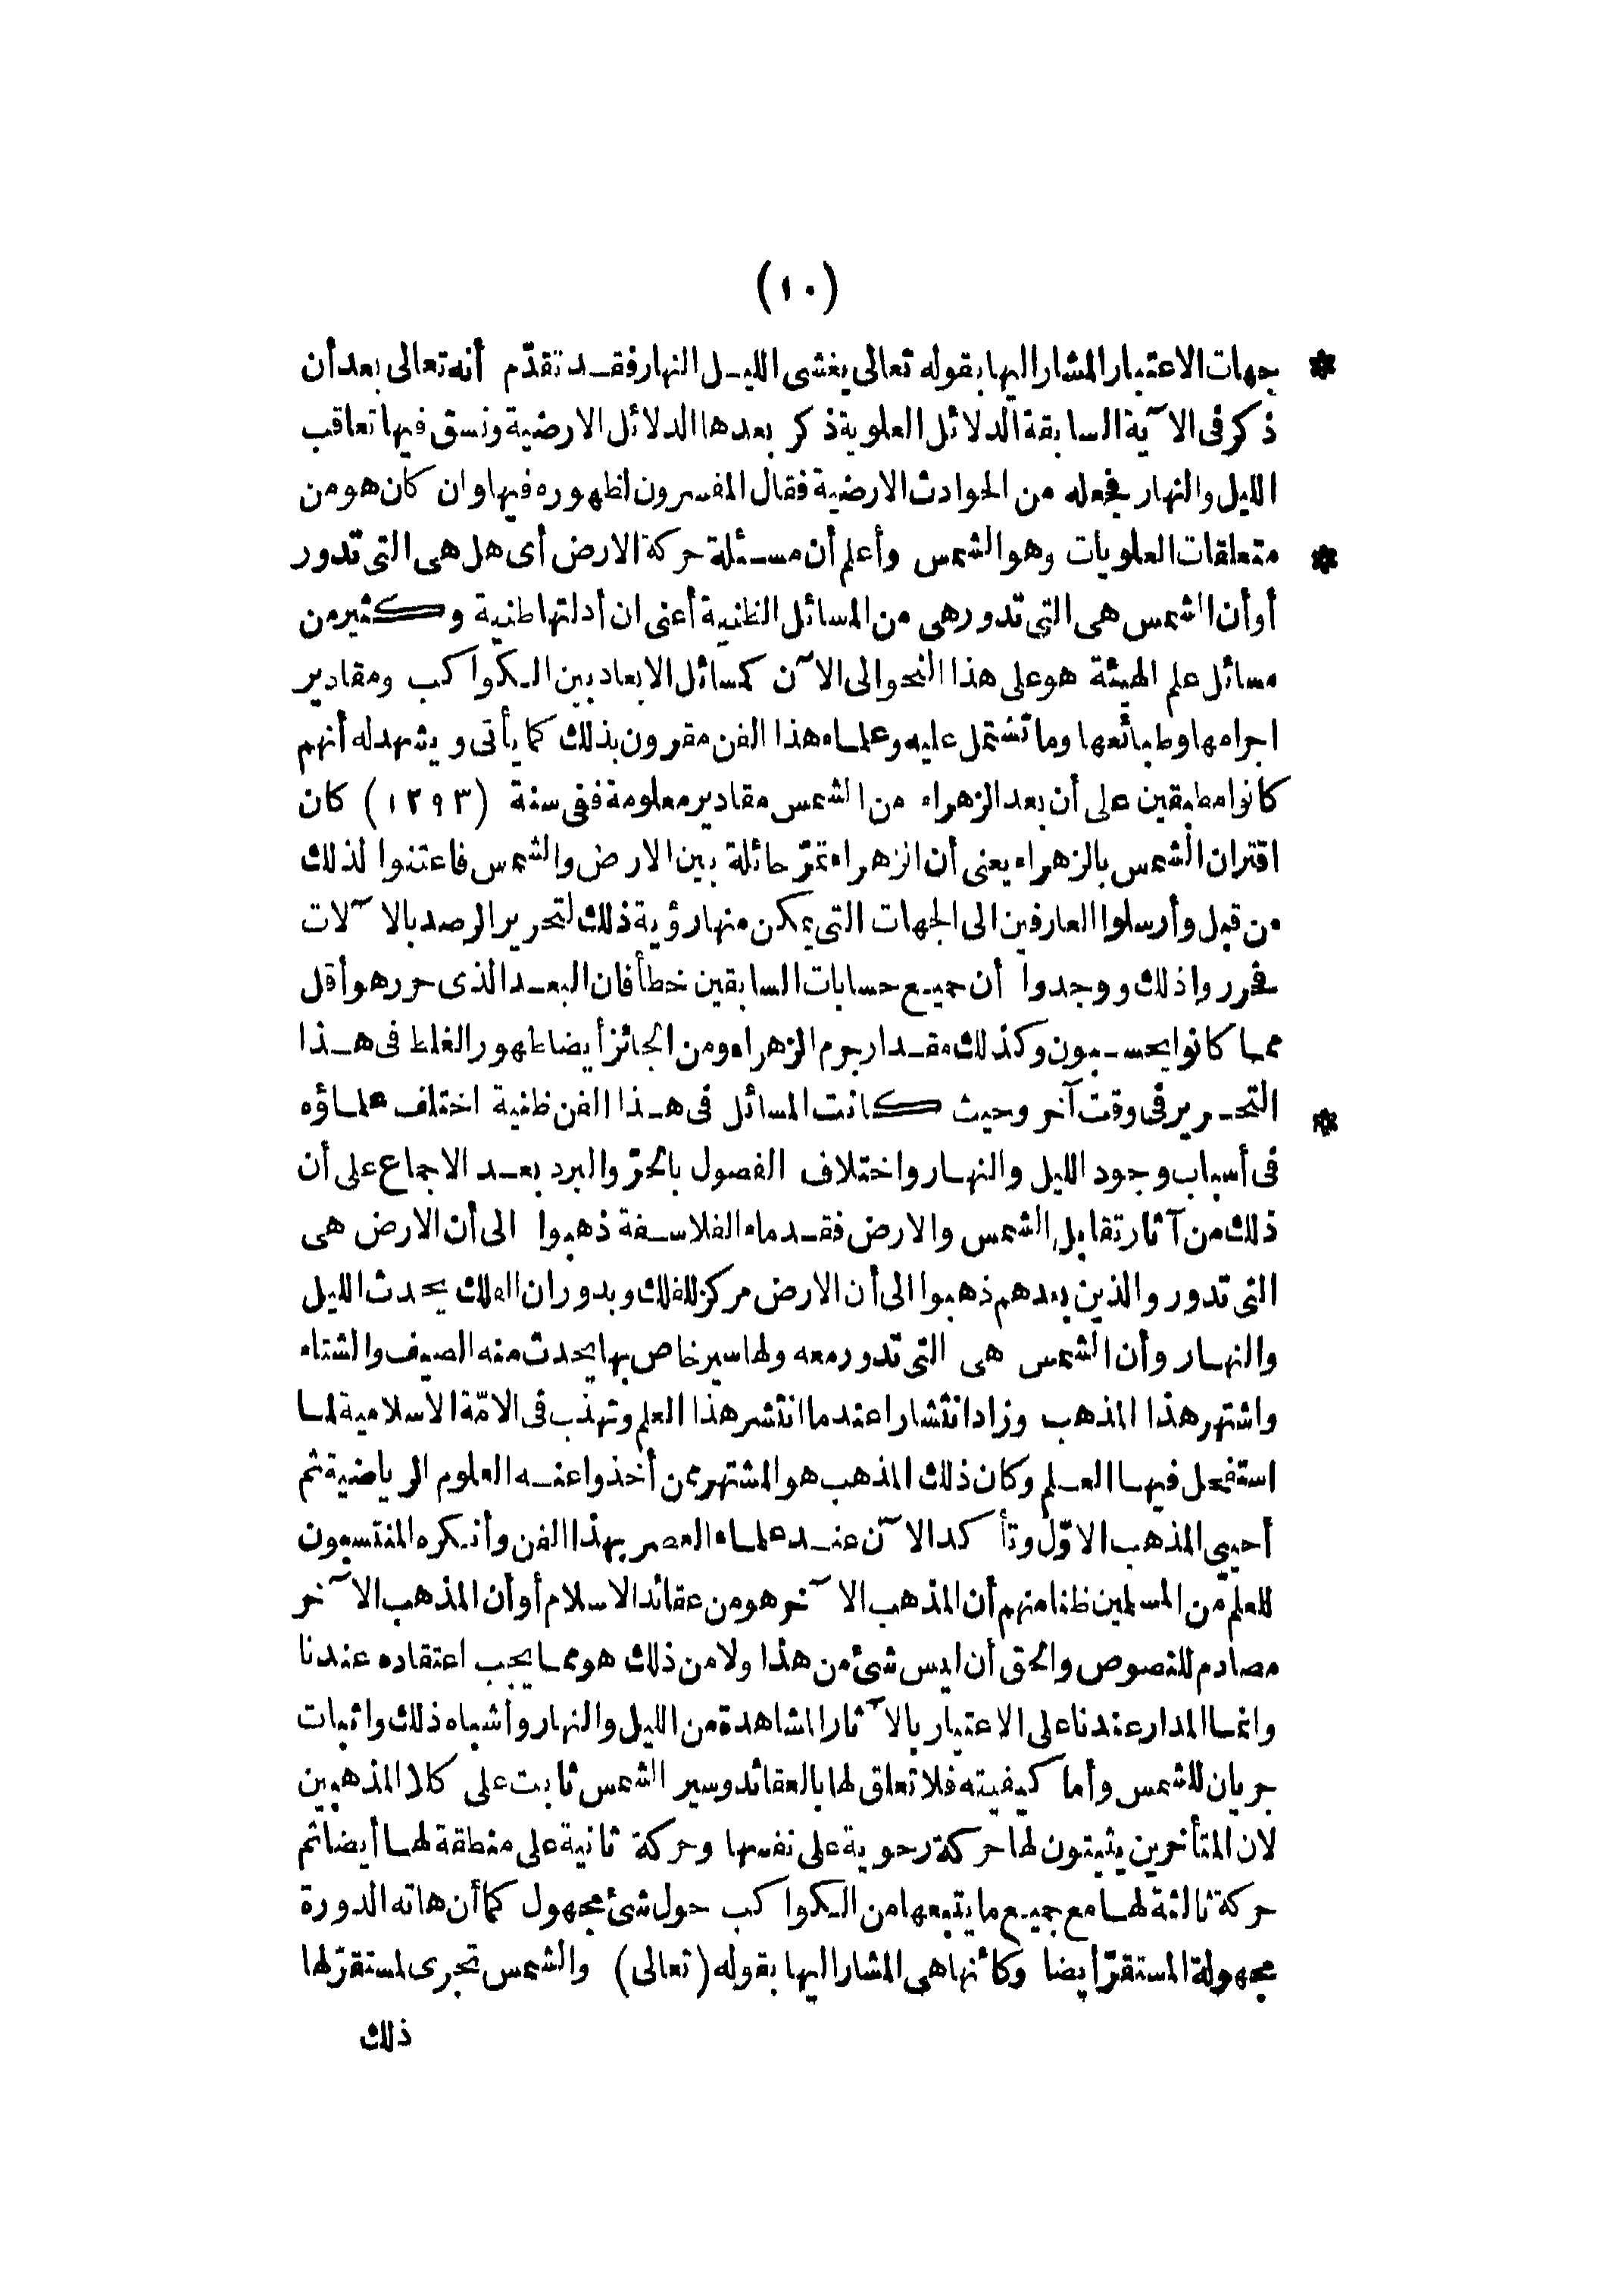 (١٠)
* جهات الاعتبار المشار اليها بقوله تعالى يغشى الليل النهار فقد تقدّم أنه تعالى بعد أن
ذكر فى الآية السابقة الدلائل العلوية ذكر بعدها الدلائل الارضية ونسق فيها تعاقب
الليل والنهار فجعله من الحوادث الارضية فقال المفسرون لظهوره فيها وان كان هو من
* متعلقات العلويات وهو الشمس وأعلم أن مسئلة حركة الارض أى هل هى التى تدور
أو أن الشمس هى التى تدور هى من المسائل الظنية أعنى ان أدلتها ظنية وكثير من
مسائل علم الهيئة هو على هذا النحو الى الآن كمسائل الابعاد بين الكواكب ومقادير
اجرامها وطبائعها وما تشتمل عليه وعلماء هذا الفن مقرون بذلك كما يأتى ويشهد له أنهم
كانوا مطبقين على أن بعد الزهراء من الشمس مقادير معلومة ففى سنة (١٢٩٣) كان
اقتران الشمس بالزهراء يعنى أن الزهراء تمرّ حائلة بين الارض والشمس فاعتنوا لذلك
من قبل وأرسلوا العارفين الى الجهات التى يمكن منها رؤية ذلك لتحرير الرصد بالآلات
فحرروا ذلك ووجدوا أن جميع حسابات السابقين خطأ فان البعد الذى حرر هو أقل
مما كانوا يحسبون وكذلك مقدار جرم الزهراء ومن الجائز أيضا ظهور الغلط فى هذا
* التحرير فى وقت آخر وحيث كانت المسائل فى هذا الفن ظنية اختلف علماؤه
فى أسباب وجود الليل والنهار واختلاف الفصول بالحرّ والبرد بعد الاجماع على أن
ذلك من آثار تقابل الشمس والارض فقدماء الفلاسفة ذهبوا الى أن الارض هى
التى تدور والذين بعدهم ذهبوا الى أن الارض مركز للفلك وبدوران الفلك يحدث الليل
والنهار وأن الشمس هى التى تدور معه ولها سير خاص بها يحدث منه الصيف والشتاء
واشتهر هذا المذهب وزاد انتشارا عندما انتشر هذا العلم وتهذب فى الامّة الاسلامية لما
استفحل فيها العلم وكان ذلك المذهب هو المشتهر ممن أخذوا عنه العلوم الرياضية ثم
أحيى المذهب الاوّل وتأكد الآن عند علماء العصر بهذا الفن وأنكره المنتسبون
للعلم من المسلمين ظنا منهم أن المذهب الآخر هو من عقائد الاسلام أو أن المذهب الآخر
مصادم للنصوص والحق أن ليس شئ من هذا ولا من ذلك هو مما يجب اعتقاده عندنا
وانما المدار عندنا على الاعتبار بالآثار المشاهدة من الليل والنهار وأشباه ذلك واثبات
جريان للشمس وأما كيفيته فلا تعلق لها بالعقائد وسير الشمس ثابت على كلا المذهبين
لان المتأخرين يثبتون لها حركة رحوية على نفسها وحركة ثانية على منطقة لها أيضا ثم
حركة ثالثة لها مع جميع ما يتبعها من الكواكب حول شئ مجهول كما أن هاته الدورة
مجهولة المستقرّ أيضا وكأنها هى المشار اليها بقوله (تعالى) والشمس تجرى لمستقرّ لها
ذلك